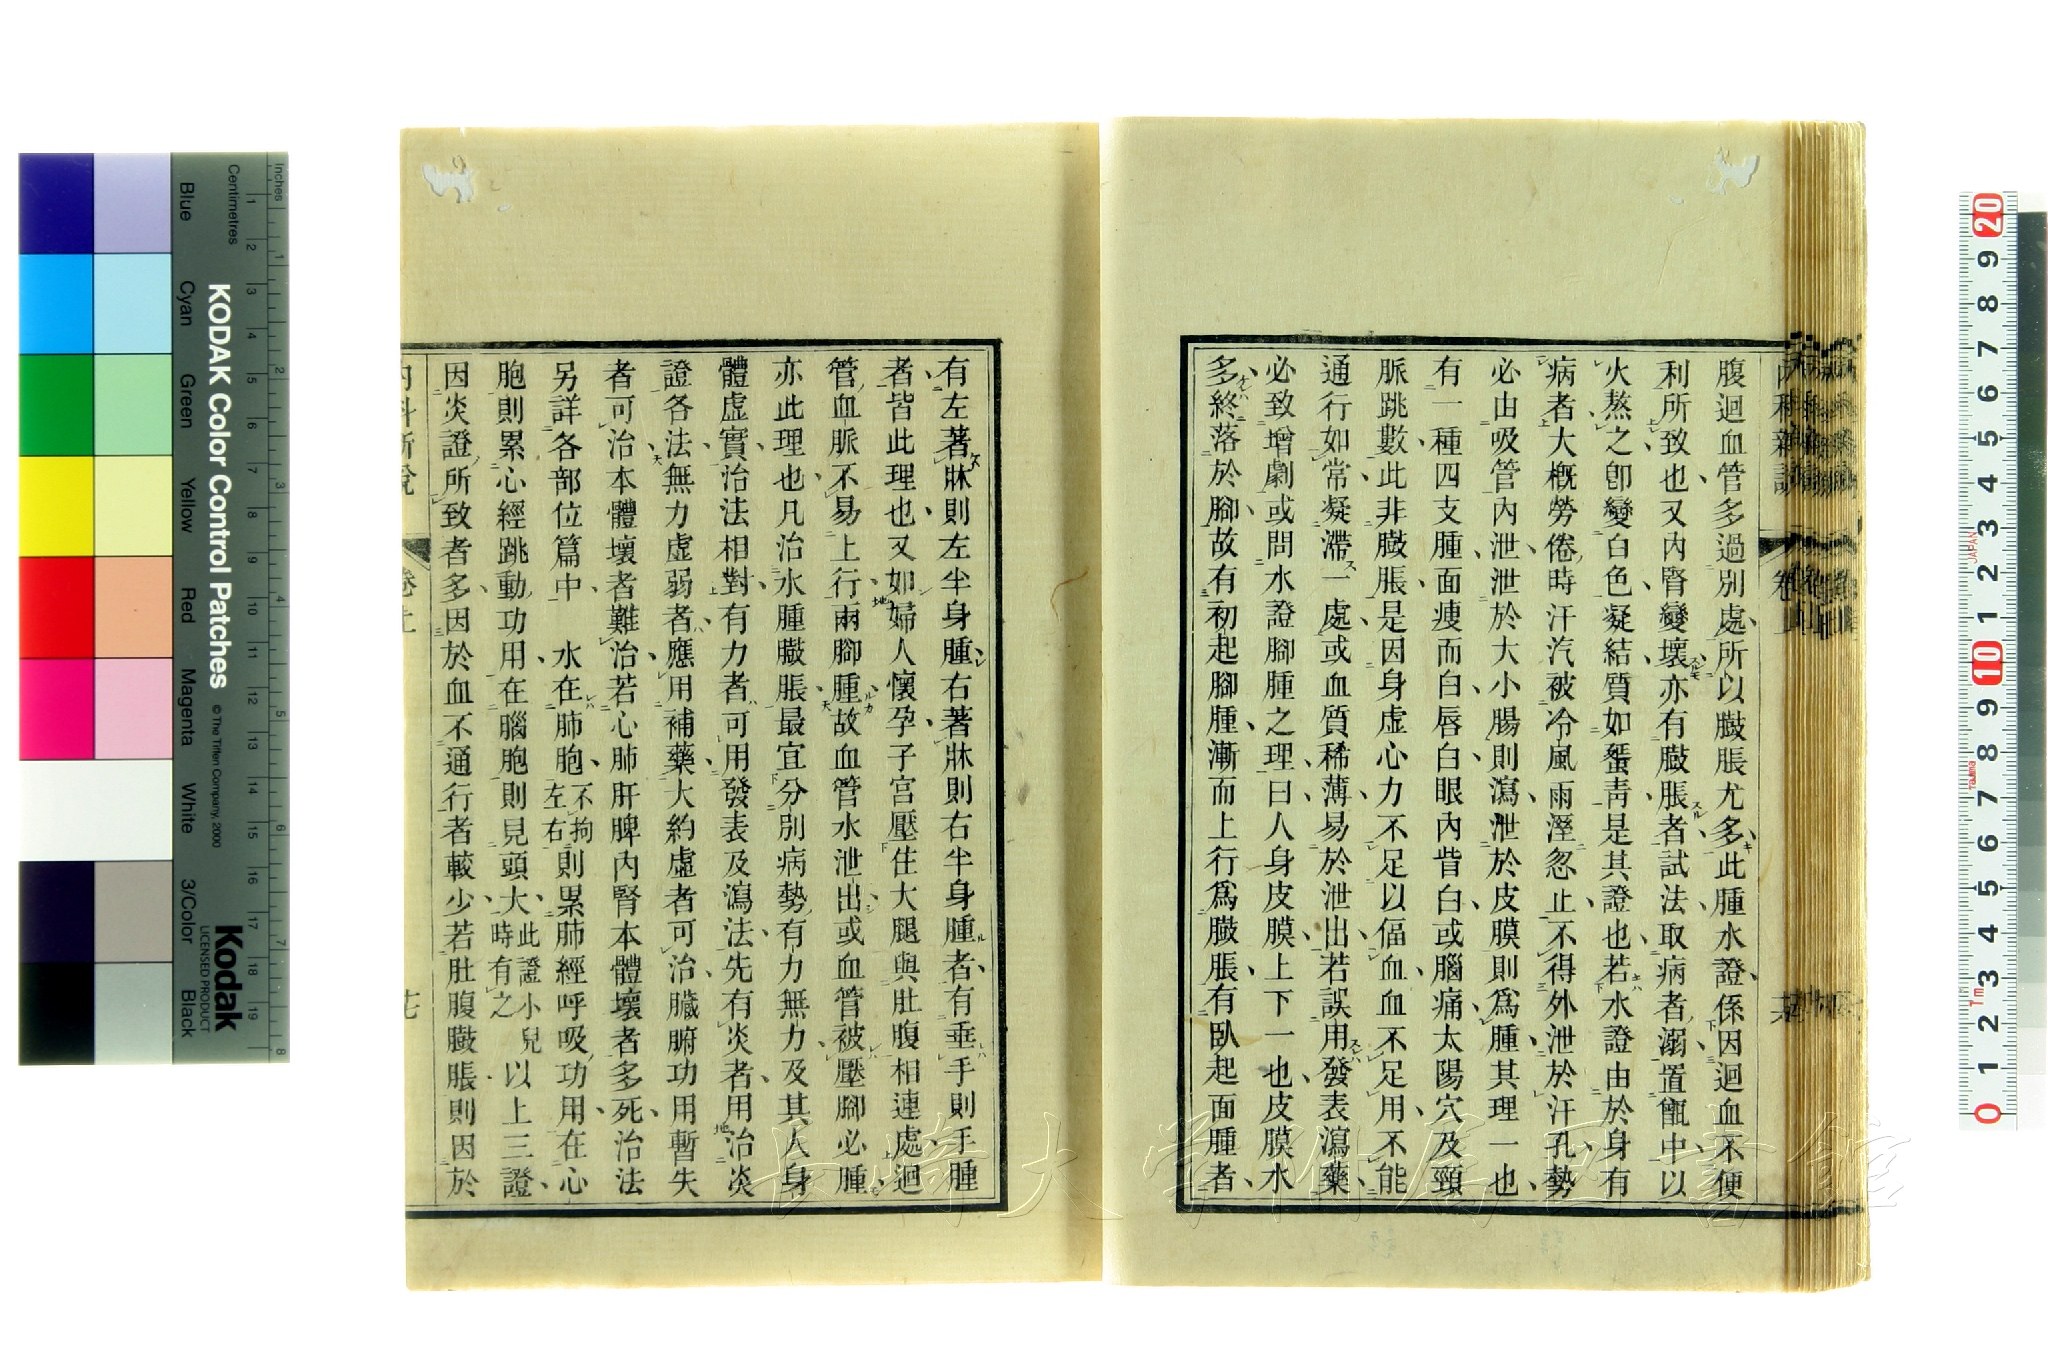 腹迴血管多過別處所以臌脹尤多此腫水證係因迴血不便
利所致也又內腎變壞亦有臌脹者試法取病者溺置甑中以
火熬之卽變白色凝結質如蜑靑是其證也若水證由於身有
病者大槪勞倦時汗汽被冷風雨溼忽止不得外泄於汗孔勢
必由吸管內泄泄於大小腸則瀉泄於皮膜則爲腫其理一也
有一種四支腫面瘦而白唇白眼內眥白或腦痛太陽穴及頸
脈跳數此非臌脹是因身虛心力不足以偪血血不足用不能
通行如常凝滯一處或血質稀薄易於泄出若誤用發表瀉藥
必致增劇或問水證腳腫之理曰人身皮膜上下一也皮膜水
多終落於腳故有初起腳腫漸而上行爲臌脹有臥起面腫者
有左著牀則左半身腫右著牀則右半身腫者有垂手則手腫
者皆此理也又如婦人懷孕子宮壓住大腿與肚腹相連處迴
管血脈不易上行兩腳腫故血管水泄出或血管被壓腳必腫
亦此理也凡治水腫臌脹最宜分別病勢有力無力及其人身
體虛實治法相對有力者可用發表及瀉法先有炎者用治炎
證各法無力虛弱者應用補藥大約虛者可治臟腑功用暫失
者可治本體壞者難治若心肺肝脾內腎本體壞者多死治法
另詳各部位篇中　水在肺胞不拘左右則累肺經呼吸功用在心
胞則累心經跳動功用在腦胞則見頭大此證小兒時有之以上三證
因炎證所致者多因於血不通行者較少若肚腹臌脹則因於
內科新說
卷上
廿
KODAK Color Control Patches
© The Tiffen Company, 2000
Kodak
LICENSED PRODUCT
Blue
Cyan
Green
Yellow
Red
Magenta
White
3/Color
Black
Inches
Centimetres
1 2 3 4 5 6 7 8 9 10 11 12 13 14 15 16 17 18 19
1 2 3 4 5 6 7 8
20 9 8 7 6 5 4 3 2 1 10 9 8 7 6 5 4 3 2 1 0
長崎大学附属図書館